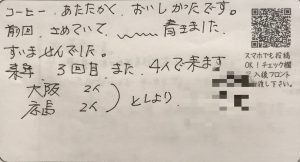 コーヒー、あたたかく、おいしかったです。
前回、さめていて、
すいませんでした。
来年、3回目、また、4人で来ます
大阪 2人
広島 2人
としより、
スマホでも投稿
OK!チェック欄
入後フロント
渡し下さい。